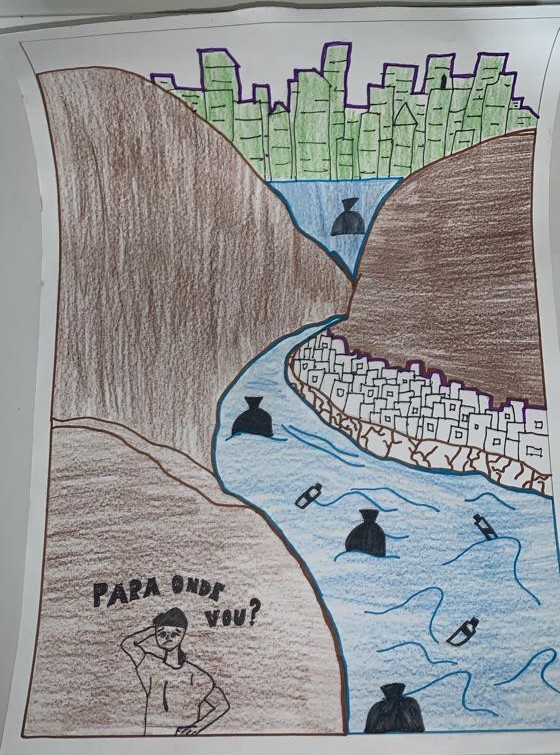 PARA ONDE
VOU?